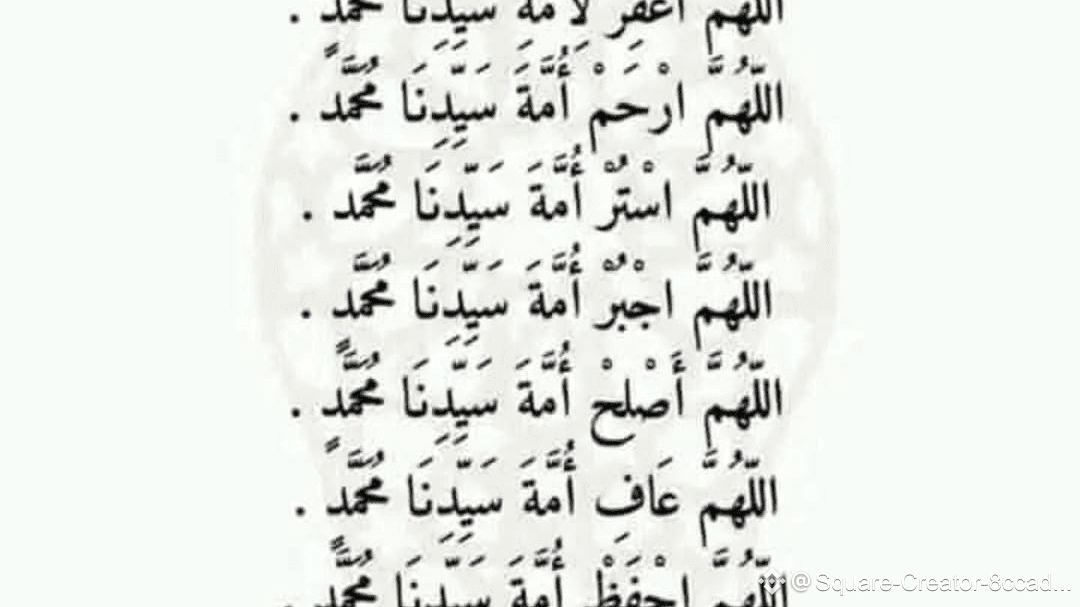 اللّهُمَّ اغْفِرْ لِأُمَّةِ سَيِّدِنَا مُحَمَّدٍ .
اللّهُمَّ ارْحَمْ أُمَّةَ سَيِّدِنَا مُحَمَّدٍ .
اللّهُمَّ اسْتُرْ أُمَّةَ سَيِّدِنَا مُحَمَّدٍ .
اللّهُمَّ اجْبُرْ أُمَّةَ سَيِّدِنَا مُحَمَّدٍ .
اللّهُمَّ أَصْلِحْ أُمَّةَ سَيِّدِنَا مُحَمَّدٍ .
اللّهُمَّ عَافِ أُمَّةَ سَيِّدِنَا مُحَمَّدٍ .
اللّهُمَّ احْفَظْ أُمَّةَ سَيِّدِنَا مُحَمَّدٍ .
@Square-Creator-8ccad...